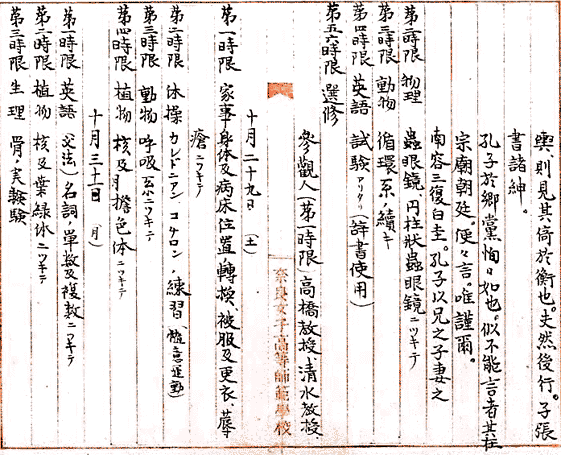 輿則見其倚於衡也。夫然後行。子張
書諸紳。
孔子於郷黨恂日如也。似不能言者其在
宗廟朝廷。便々言。唯謹爾。
南容三復白圭。孔子以兄之子妻之
第一時限 物理 蟲眼鏡、円柱状蟲眼鏡ニツキテ
第三時限 動物 循環系ノ續キ
第四時限 英語 試験アリタリ(辞書使用)
第五六時限 選修
参觀人(第一時限)高橋教授、清水教授、
奈良女子高等師範學校
十月二十九日 (土)
第一時限 家事 身体及病床位置ノ轉換、被服及更衣、蓐
瘡ニツキテ
第二時限 体操 カレドニアン コケロン、練習(随意運動)
第三時限 動物 呼吸系ニツキテ
第四時限 植物 核及月擔色体ニツキテ
十月三十一日 月)
第一時限 英語 文法)名詞ノ單数及複数ニツキテ
第二時限 植物 核及葉緑体ニツキテ
第三時限 生理 骨ノ実験